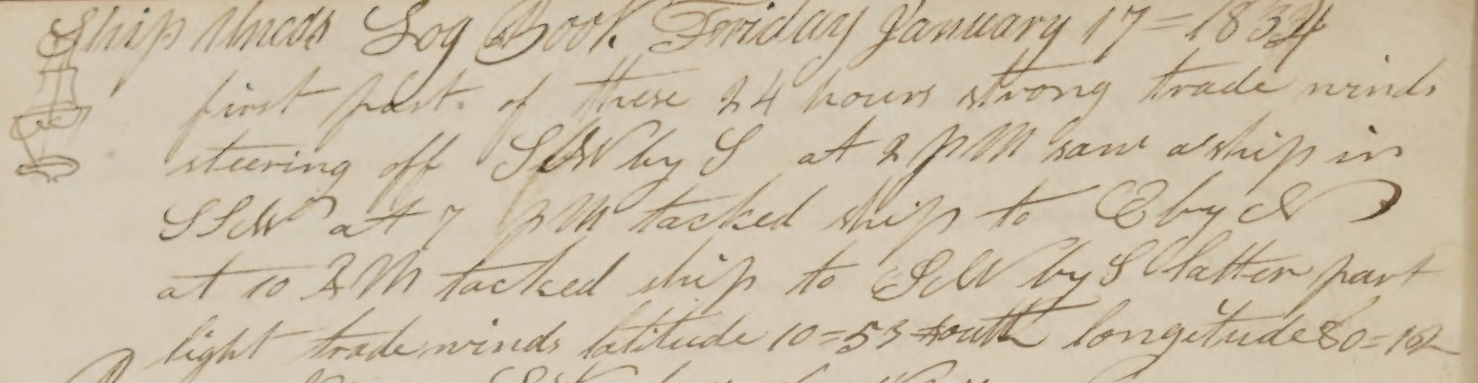 Ship Log Book Friday January 17=1834
first part of these 24 hours strong trade winds
steering off SW by S at 2 PM saw a ship in
SSW at 7 PM tacked ship to E by N
at 10 PM tacked ship to SW by S latter part
light trade winds latitude 10=53 south longitude 80=12